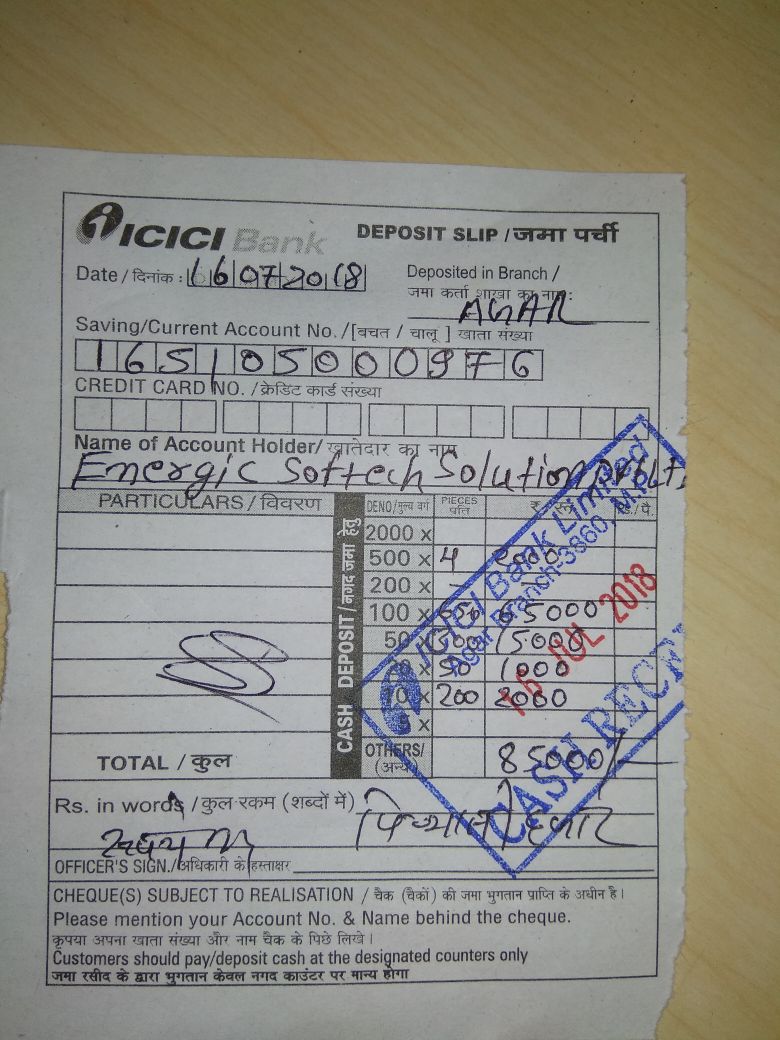 ICICI Bank
DEPOSIT SLIP / जमा पर्ची
Date / दिनांक : 16072018
Deposited in Branch /
जमा कर्ता शाखा का नाम :
AGAR
Saving/Current Account No. /[बचत / चालू ] खाता संख्या
165105000976
CREDIT CARD NO. /क्रेडिट कार्ड संख्या
Name of Account Holder/ खातेदार का नाम
Energic Softech Solution
PARTICULARS / विवरण
CASH DEPOSIT / नगद जमा हेतु
DENO/मुल्य वर्ग PIECES प्रति ₹
2000 x
500 x 4 2000
200 x –
100 x 650 65000
50 300 15000
20 x 50 1000
10 x 200 2000
5 x
OTHERS/ (अन्य)
TOTAL / कुल 85000/-
ICICI Bank Limited
Agar Branch-3860, M.P.
16 JUL 2018
CASH RECE
Rs. in words / कुल रकम (शब्दों में)
हजार
OFFICER'S SIGN./अधिकारी के हस्ताक्षर
CHEQUE(S) SUBJECT TO REALISATION / चैक (चैकों) की जमा भुगतान प्राप्ति के अधीन है।
Please mention your Account No. & Name behind the cheque.
कृपया अपना खाता संख्या और नाम चैक के पिछे लिखे।
Customers should pay/deposit cash at the designated counters only
जमा रसीद के द्वारा भुगतान केवल नगद काउंटर पर मान्य होगा